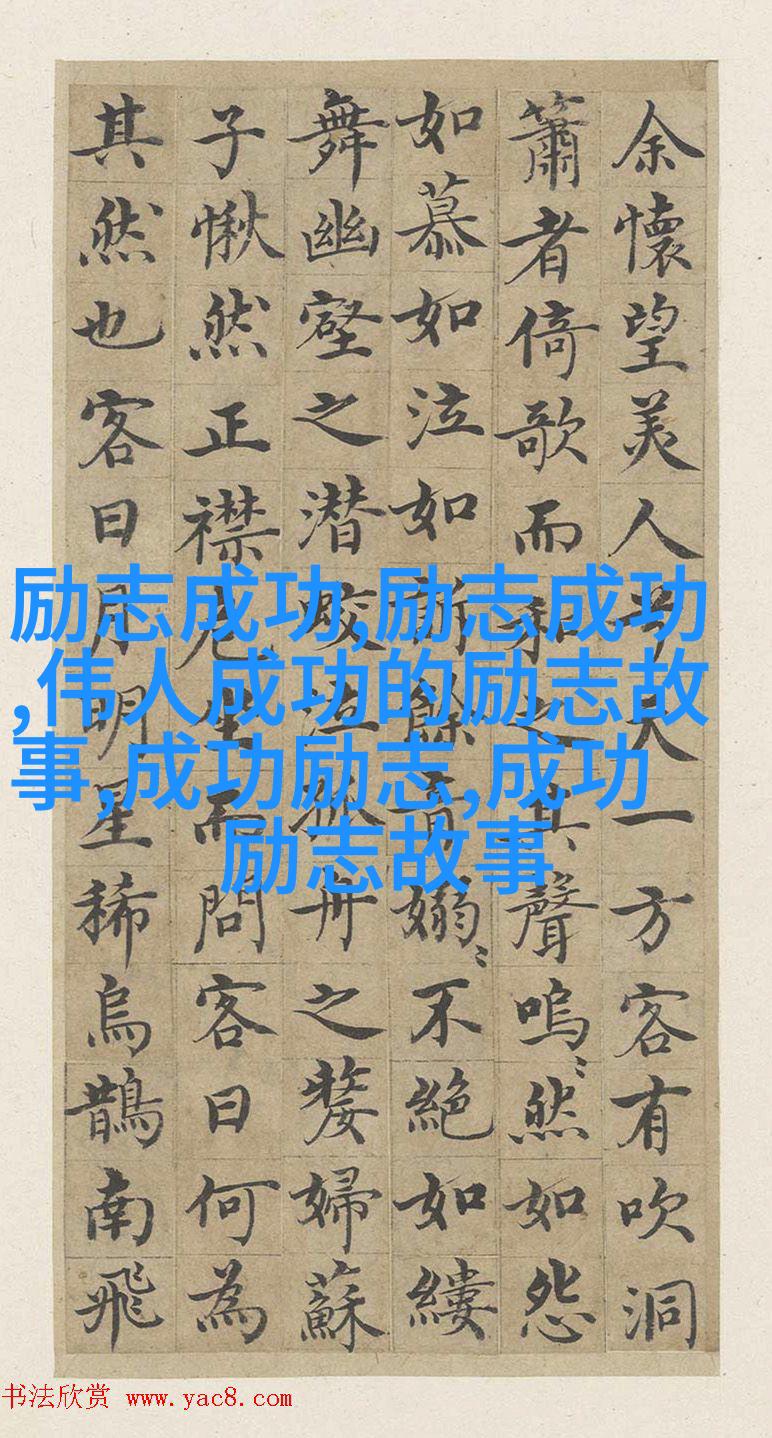 余懷望美人兮天一方客有吹洞
簫者倚歌而和之其聲嗚〻然如怨
如慕如泣如訴餘音嫋〻不絕如縷
舞幽壑之潜蛟泣孤舟之嫠婦蘇
子愀然正襟危坐而問客曰何為
其然也客曰月明星稀烏鵲南飛
励志成功,励志成功
,伟人成功的励志故
事,成功励志,成功
励志故事
书法欣赏 www.yac8.com